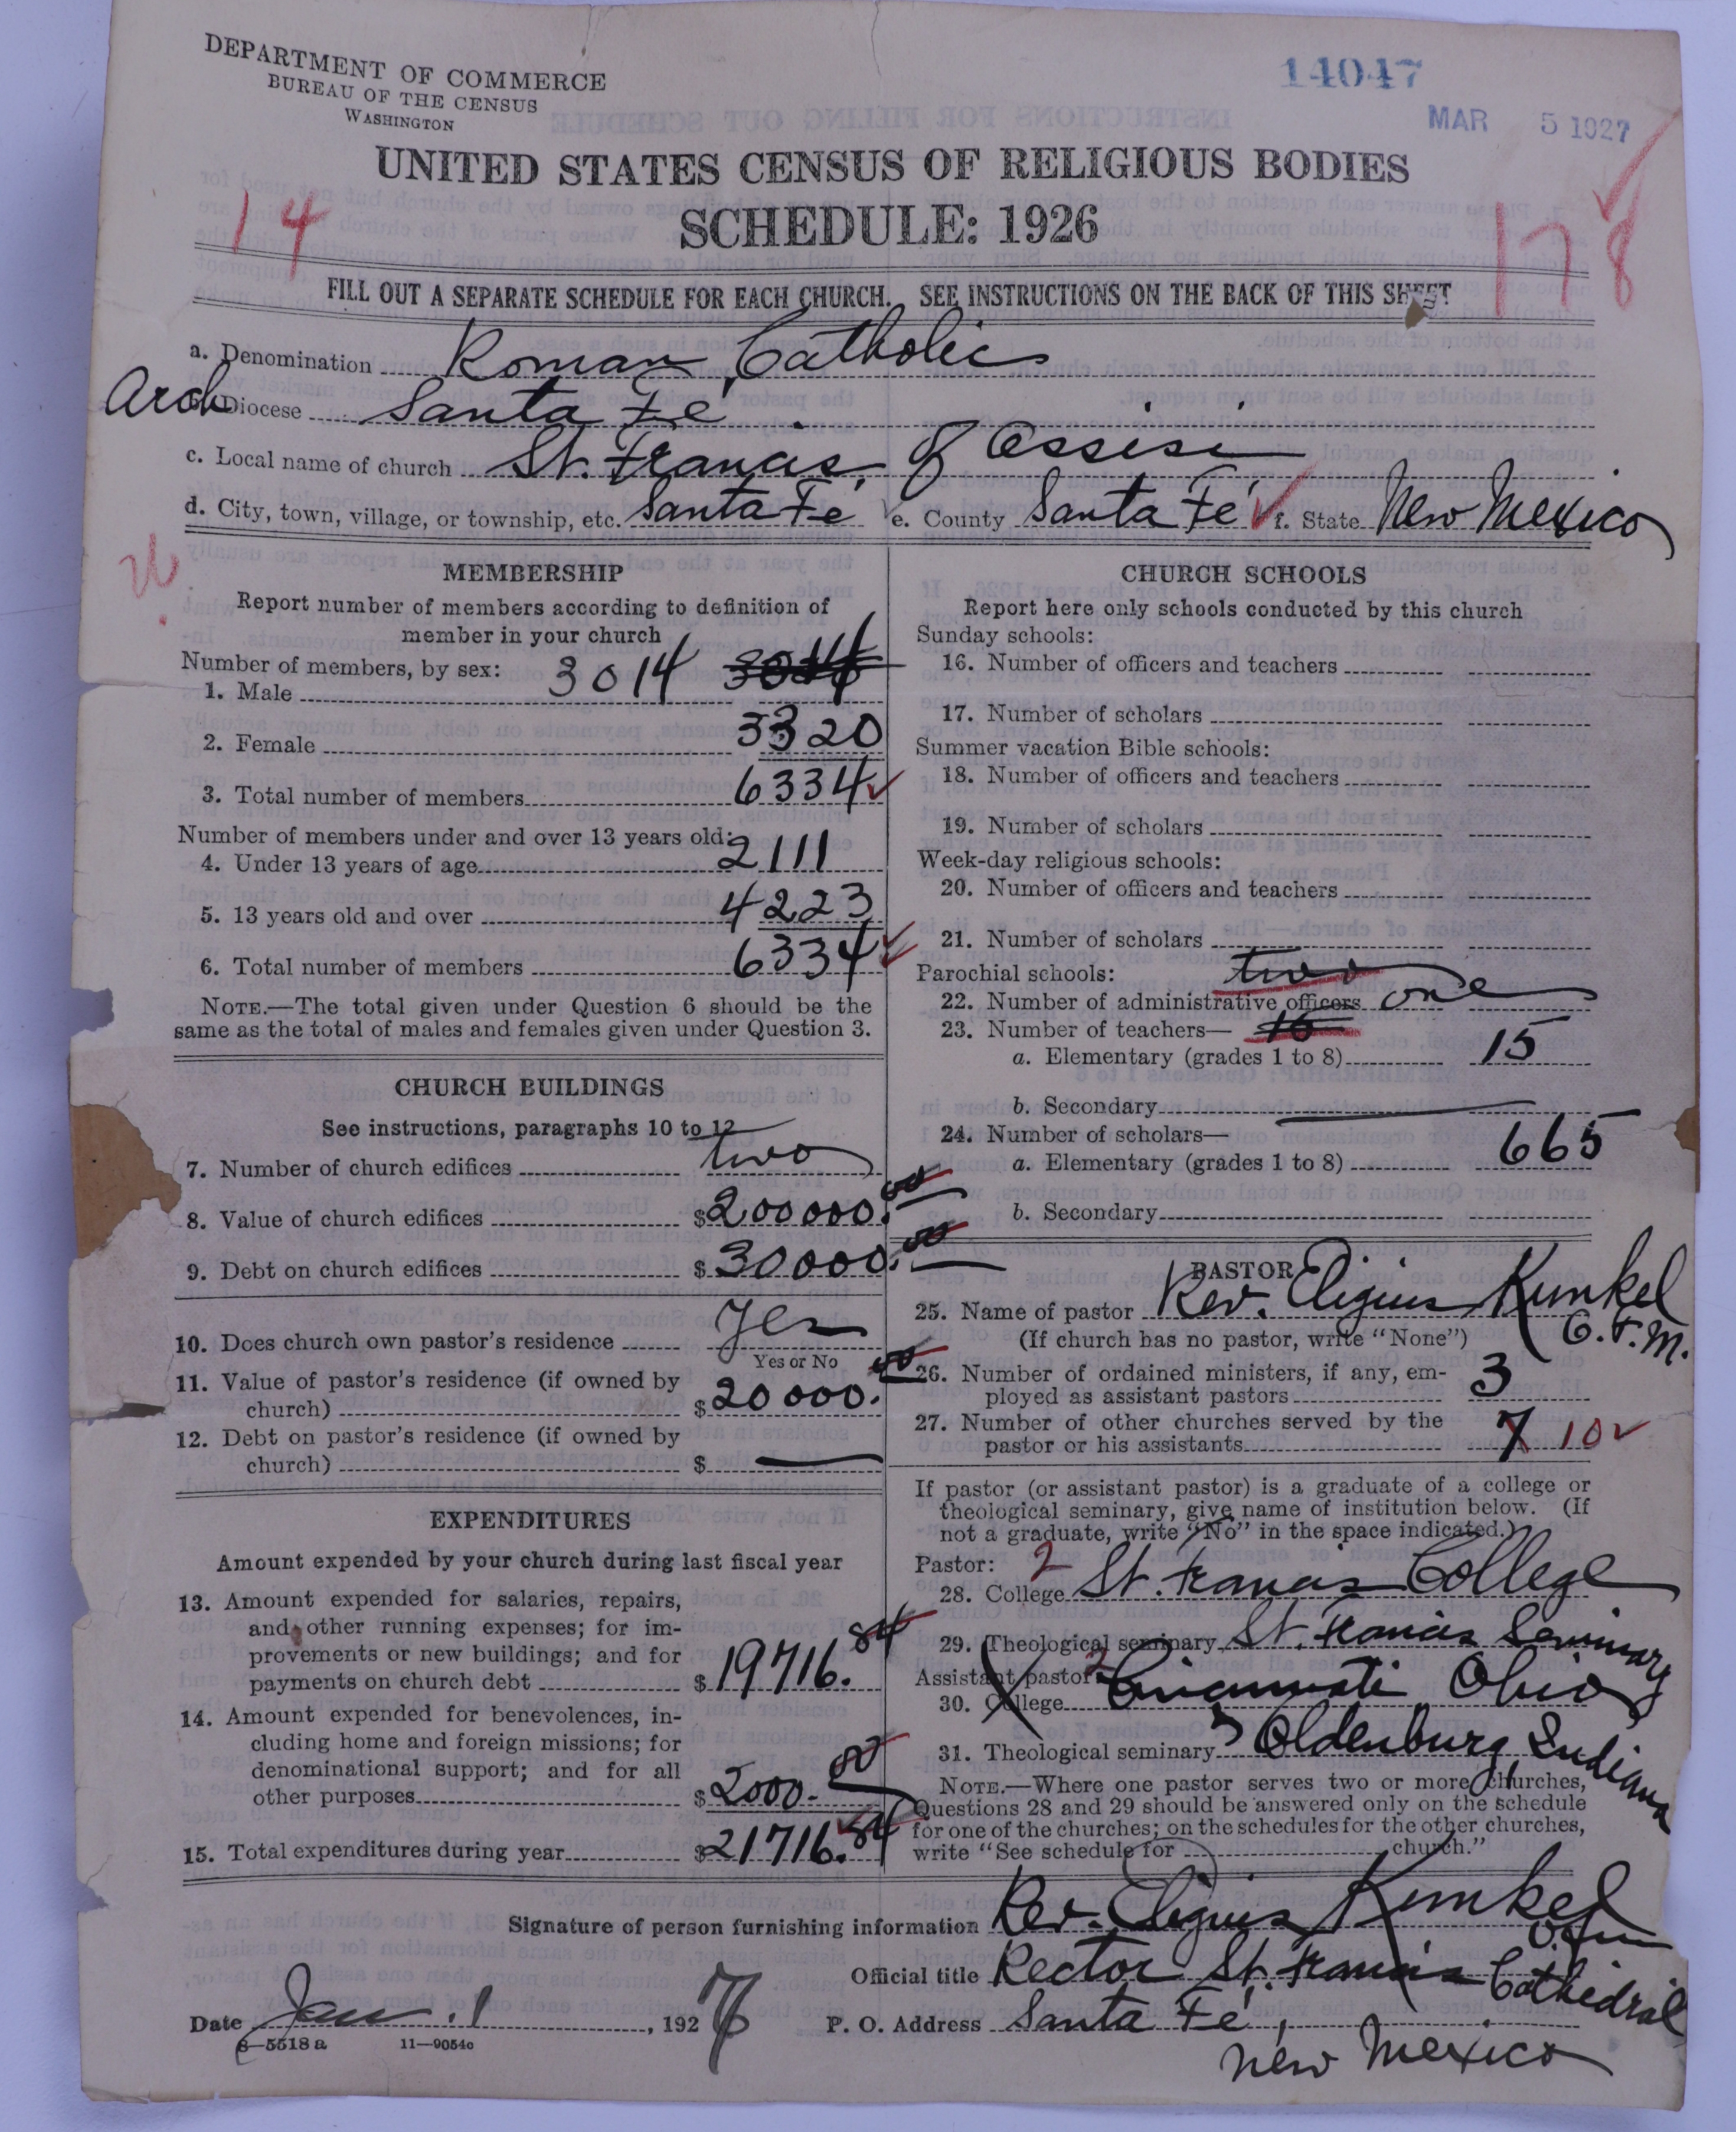 DEPARTMENT OF COMMERCE
BUREAU OF THE CENSUS
WASHINGTON
14047
MAR 5 1927
UNITED STATES CENSUS OF RELIGIOUS BODIES
SCHEDULE: 1926
14
178
FILL OUT A SEPARATE SCHEDULE FOR EACH CHURCH. SEE INSTRUCTIONS ON THE BACK OF THIS SHEET
a. Denomination Roman Catholic
Arch Diocese Santa Fé
c. Local name of church St. Francis of Assisi
d. City, town, village, or township, etc. Santa Fé e. County Santa Fé f. State New Mexico
MEMBERSHIP
Report number of members according to definition of
member in your church
Number of members, by sex: 3014
1. Male
2. Female 3320
3. Total number of members 6334
Number of members under and over 13 years old:
4. Under 13 years of age 2111
5. 13 years old and over 4223
6. Total number of members 6334
NOTE.—The total given under Question 6 should be the
same as the total of males and females given under Question 3.
CHURCH BUILDINGS
See instructions, paragraphs 10 to 12
7. Number of church edifices two
8. Value of church edifices $200000.00
9. Debt on church edifices $30000.00
10. Does church own pastor's residence Yes
Yes or No
11. Value of pastor's residence (if owned by
church) $20000.00
12. Debt on pastor's residence (if owned by
church) $ —
EXPENDITURES
Amount expended by your church during last fiscal year
13. Amount expended for salaries, repairs,
and other running expenses; for im-
provements or new buildings; and for
payments on church debt $19716.84
14. Amount expended for benevolences, in-
cluding home and foreign missions; for
denominational support; and for all
other purposes $2000.00
15. Total expenditures during year $21716.84
CHURCH SCHOOLS
Report here only schools conducted by this church
Sunday schools:
16. Number of officers and teachers
17. Number of scholars
Summer vacation Bible schools:
18. Number of officers and teachers
19. Number of scholars
Week-day religious schools:
20. Number of officers and teachers
21. Number of scholars
Parochial schools: two
22. Number of administrative officers one
23. Number of teachers— 16
a. Elementary (grades 1 to 8) 15
b. Secondary
24. Number of scholars—
a. Elementary (grades 1 to 8) 665
b. Secondary
PASTOR
25. Name of pastor Rev. Eligius Kunkel
(If church has no pastor, write "None") O.F.M.
26. Number of ordained ministers, if any, em-
ployed as assistant pastors 3
27. Number of other churches served by the
pastor or his assistants 7 10
If pastor (or assistant pastor) is a graduate of a college or
theological seminary, give name of institution below. (If
not a graduate, write "No" in the space indicated.)
Pastor: 2
28. College St. Francis College
29. Theological seminary St. Francis Seminary
Assistant pastor: 2 Cincinnati Ohio
30. College
31. Theological seminary Oldenburg, Indiana
NOTE.—Where one pastor serves two or more churches,
Questions 28 and 29 should be answered only on the schedule
for one of the churches; on the schedules for the other churches,
write "See schedule for church."
Signature of person furnishing information Rev. Eligius Kunkel
O.F.M.
Official title Rector St. Francis Cathedral
Date Jan. 1, 1927 P. O. Address Santa Fé,
New Mexico
8—5518a 11—9054c